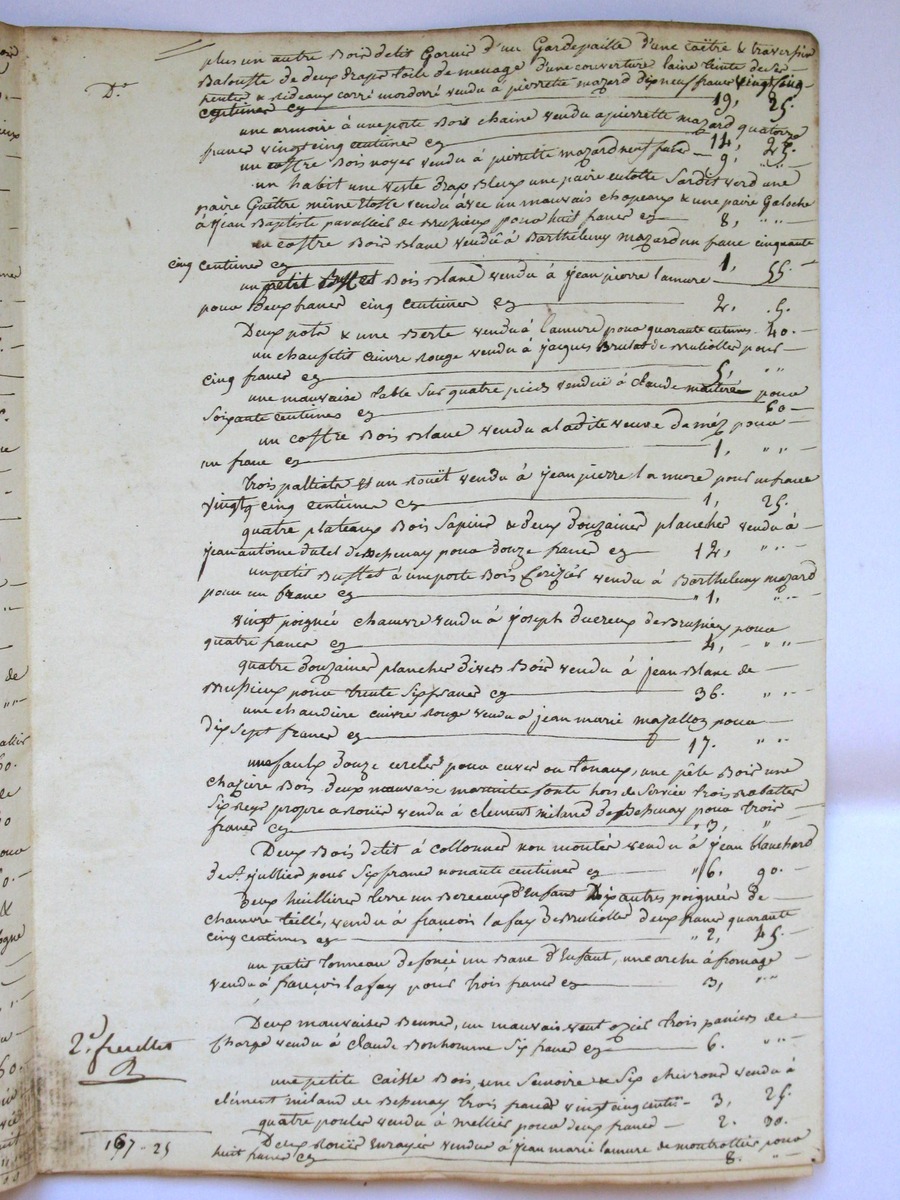 plus un autre Bois delit Garnie d'un Gardepaille d'une caëtre & traversin
Balouffe de deux draps toile de menage d'une couverture laine teinte de
D.º
& rideaux carré mordorré vendu a pierrette mazard dix neuf francs vingt cinq
centimes cy 19, 25.
une armoire à une porte Bois chaine vendu a pierrette mazard quatorze
francs vingt cinq centimes cy 14, 25.
un coffre Bois noyer vendu à pierrette mazard neuf francs 9, " "
un habit une veste drap Bleux une paire culotte Sardis verd une
paire Guêtre même Etoffe vendu avec un mauvais chapeaux & une paire Galoche
à Jean Baptiste pavallier de Brussieux pour huit francs cy 8, " "
un coffre Bois Blanc vendu à Barthelemy mazard un franc cinquante
cinq centimes cy 1, 55.
un petit Buffet Bois Blanc vendu à jean pierre lamure
pour Deux francs cinq centimes cy 2, .5.
Deux pots & une Berte vendu à lamure pour quarante centimes 40.
un chaufelit cuivre rouge vendu à jacques Brulat de pour
cinq francs cy 5, " "
une mauvaise table sur quatre pieds vendue à claude pour
soixante centimes cy 60
un coffre Bois Blanc vendu a ladite veuve Daméz pour
un franc cy 1, " "
trois Et un rouët vendu à jean pierre la more pour un franc
vingt cinq centimes cy 1, 25.
quatre plateaux Bois Sapins & deux douzaines plancher vendu à
jean antoine dutel de Bessenay pour douze francs cy 12, " "
un petit Buffet à une porte Bois Cerizier vendu à Barthelemy mazard
pour un franc cy " 1, " "
vingt poignée chanvre vendu à joseph ducreux de Brussieu pour
quatre francs cy 4, " "
quatre douzaines plancher divers Bois vendu à jean Blanc de
Brussieux pour trente six francs cy 36. " "
une chaudière cuivre rouge vendu a jean marie mazalloz pour
dix sept francs cy 17. " "
une faulx douze cercles pour cuver ou tonaux, une pêle Bois une
chaziere Bois deux mauvaise marmites fonte hors de service trois rabattes
six propre a vendu à clément miland de Bessenay pour trois
francs cy " 3, "
Deux Bois delit à collonnes non montés vendu à jean blanchard
de St jullien pour six francs nonante centimes cy " 6. 90.
Deux huilliers verre un Berceaux d'Enfant Dix autres poignée de
chanvre teillé, vendu à françois lafay de deux francs quarante
cinq centimes cy " 2, 45.
un petit tonneau defoncé un Banc d'Enfant, une arche à fromage
vendu à françois lafay pour trois francs cy 3, " "
Deux mauvaises Bennes, un mauvais vent ozier trois paniers de
charge vendu à claude Bonhomme six francs cy 6. " "
2.e
une petite caisse Bois, une Semoire & six chevrons vendu à
clément miland de Bessenay trois francs vingt cinq cent.s 3, 25.
quatre poules vendu à mellier pour deux francs 2. 30.
Deux vendues à jean marie lamure de montrottier pour
huit francs cy 8. " "
167 - 25